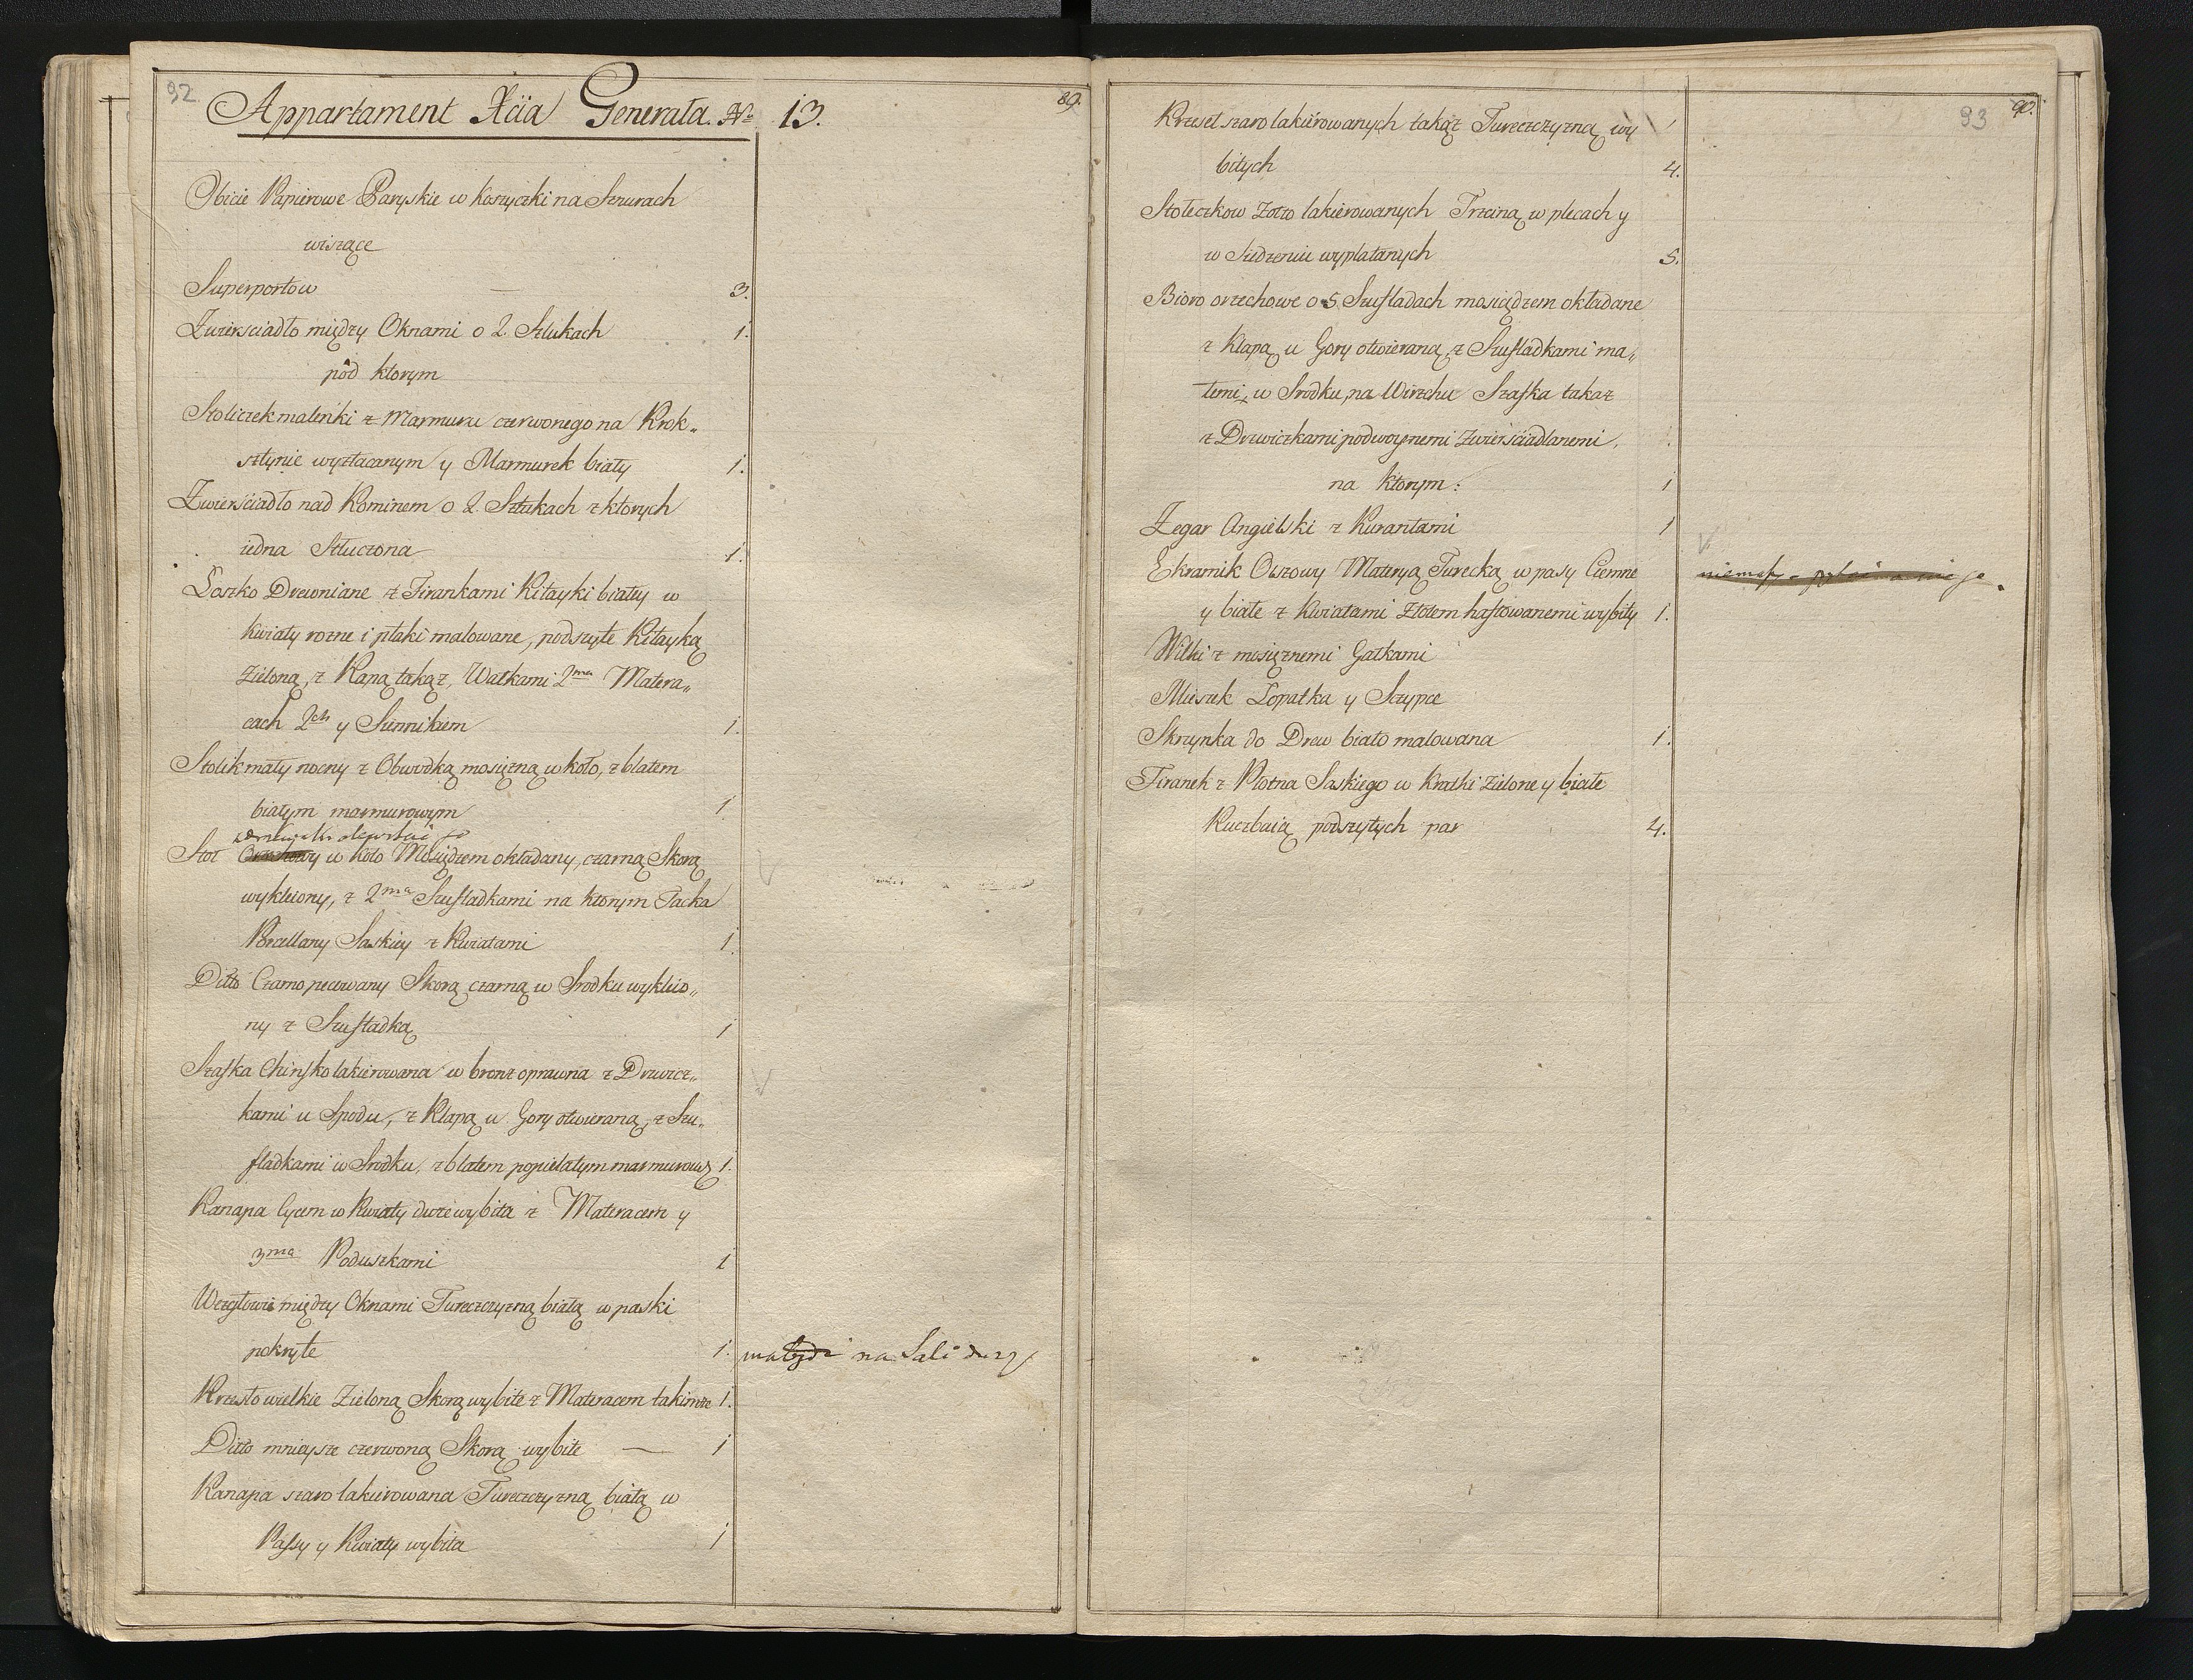 92
89.
Appartament Xcia Generała. No. 13.
Obicie Papierowe Paryskie w koszyczki na Sznurach
wiszące
Superportow — 3.
Zwirsciadło między Oknami o 2. Sztukach 1.
pod ktorym
Stoliczek maleńki z Marmuru czerwonego na Krok„
sztynie wyzłacanym y Marmurek biały 1.
Zwierściadło nad Kominem o 2. Sztukach z ktorych
iedna Stłuczona 1.
Łoszko Drewniane z Firankami Kitayki białey w
kwiaty rozne i ptaki malowane, podszyte Kitayką
Zieloną, z Kapą takąz, Wałkami 2ma Matera„
cach 2ch y Siennikiem 1.
Stolik mały nocny z Obwodką mosięzną w koło, z blatem
białym marmurowym 1
Stoł Orzechowy w koło Mosiądzem okładany, czarną Skorą
wykleiony, z 2ma Szufladkami na ktorym Tacka
Porcellany Saskiey z Kwiatami 1.
Ditto Czarno pecowany Skorą czarną w Srodku wykleio„
ny z Szufladką 1
Szafka Chińsko lakierowana w bronz oprawna z Drzwicz„
kami u Spodu, z Klapą u Gory otwieraną, z Szu„
fladkami w Srodku, z blatem popielatym marmurowỹ 1.
Kanapa Cycem w Kwiaty duze wybita z Materacem y
3ma Poduszkami 1
Wezgłowie między Oknami Tureczczyzną białą w paski
pokryte 1.
na Sali
Krzesło wielkie Zieloną Skorą wybite z Materacem takimze 1.
Ditto mnieysze czerwoną Skorą wybite — 1
Kanapa szaro lakierowana Tureczczyzną białą w
Passy y Kwiaty wybita 1
93
90.
Krzeseł szaro lakierowanych takąz Tureczczyzną wy
bitych 4.
Stołeczkow zołto lakierowanych Trzciną w plecach y
w Siedzeniu wyplatanych 5.
Bioro orzechowe o 5. Szufladach mosiądzem okładane
z Klapą u Gory otwieraną, z Szufladkami ma„
łemi, w Srodku, na Wirzchu Szafka takaz
z Drzwiczkami podwoynemi zwierściadlanemi,
na ktorym: 1
Zegar Angielski z Kurantami 1
Ekramik Olszowy Materyą Turecką w pasy Ciemne
y białe z Kwiatami Złotem haftowanemi wybity 1.
Wilki z mosięznemi Gałkami
Mieszek Łopatka y Szypce
Skrzynka do Drew biało malowana 1.
Firanek z Płotna Saskiego w Kratki zielone y białe
Kuczbaią podszytych par 4.